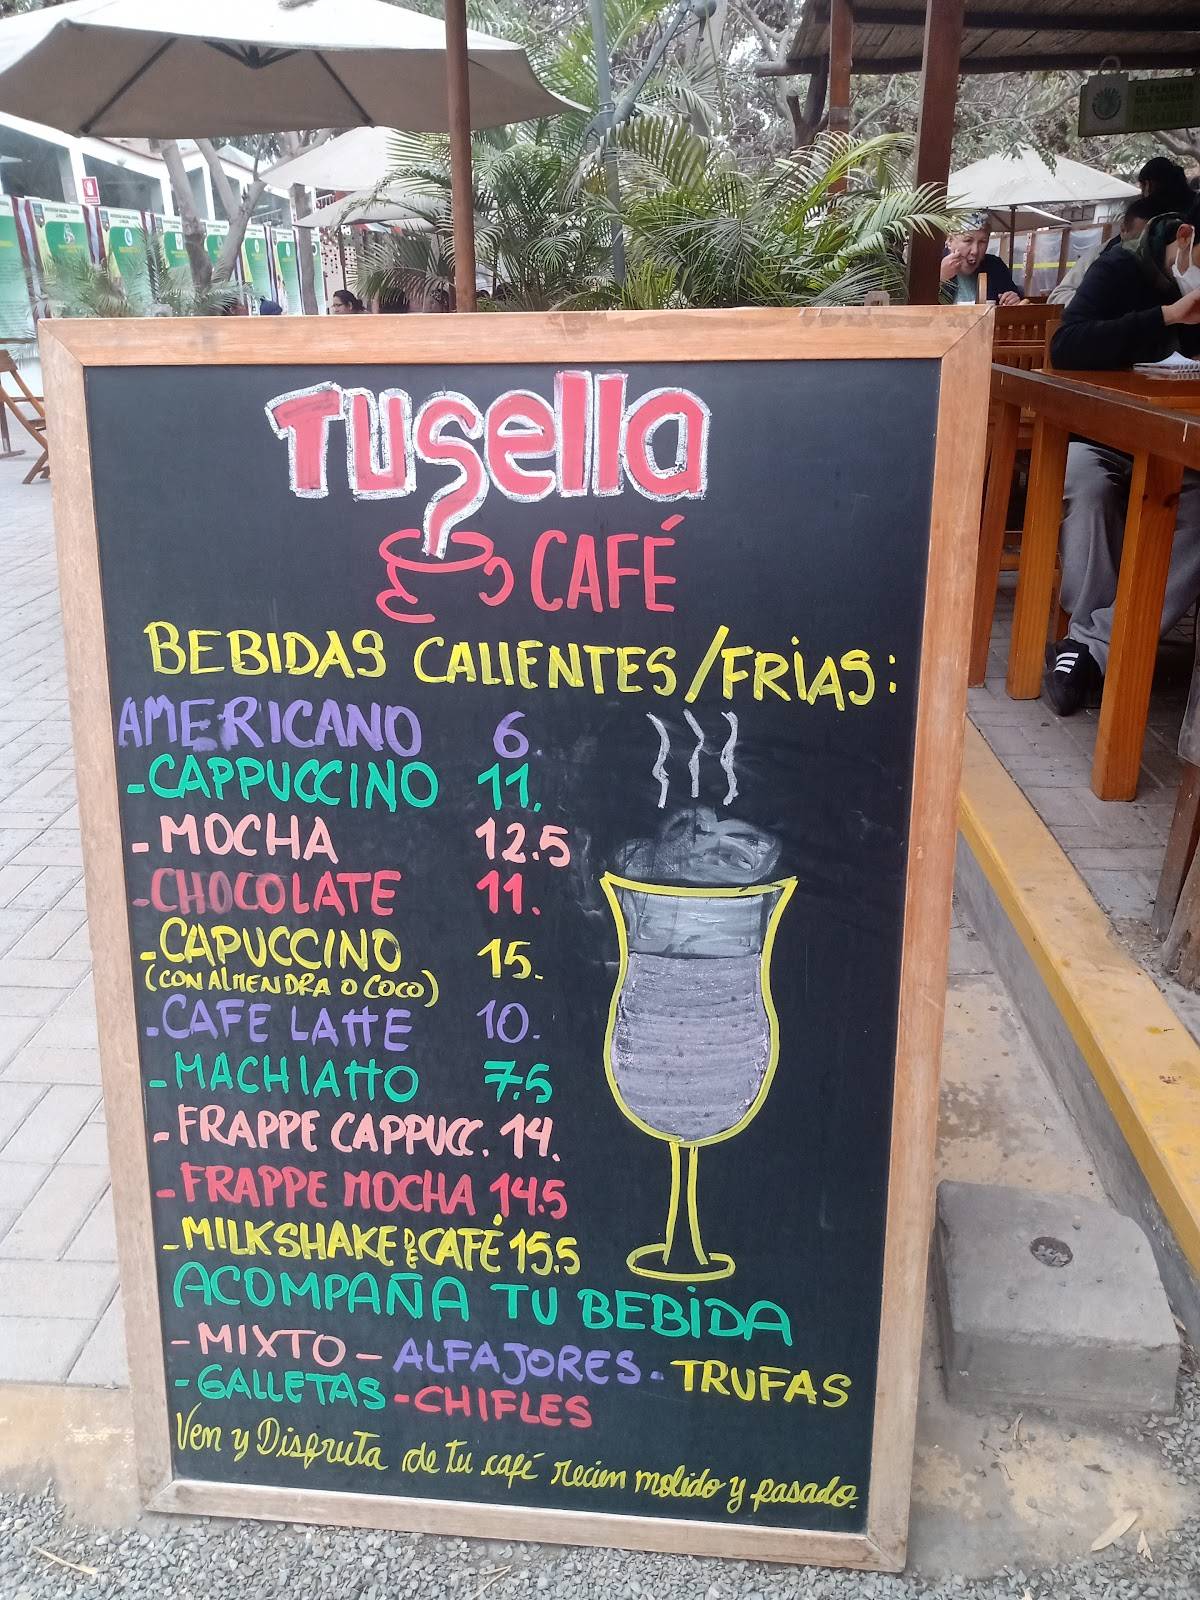 Tusella
CAFÉ
BEBIDAS CALIENTES/FRÍAS:
AMERICANO 6.
-CAPPUCCINO 11.
-MOCHA 12.5
-CHOCOLATE 11.
-CAPUCCINO 15.
(CON ALMENDRA O COCO)
-CAFE LATTE 10.
-MACHIATTO 7.5
-FRAPPE CAPPUCC. 14.
-FRAPPE MOCHA 14.5
-MILKSHAKE DE CAFÉ 15.5
ACOMPAÑA TU BEBIDA
-MIXTO - ALFAJORES - TRUFAS
-GALLETAS -CHIFLES
Ven y Disfruta de tu café recien molido y pasado.
EL PLANETA